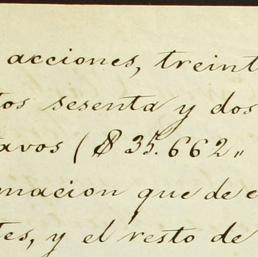 acciones, treint
tos sesenta y dos
tavos ($ 35.662 „
macion que de e
tes, y el resto de